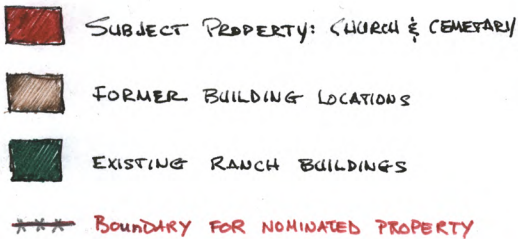 SUBJECT PROPERTY: CHURCH & CEMETARY
FORMER BUILDING LOCATIONS
EXISTING RANCH BUILDINGS
BOUNDARY FOR NOMINATED PROPERTY